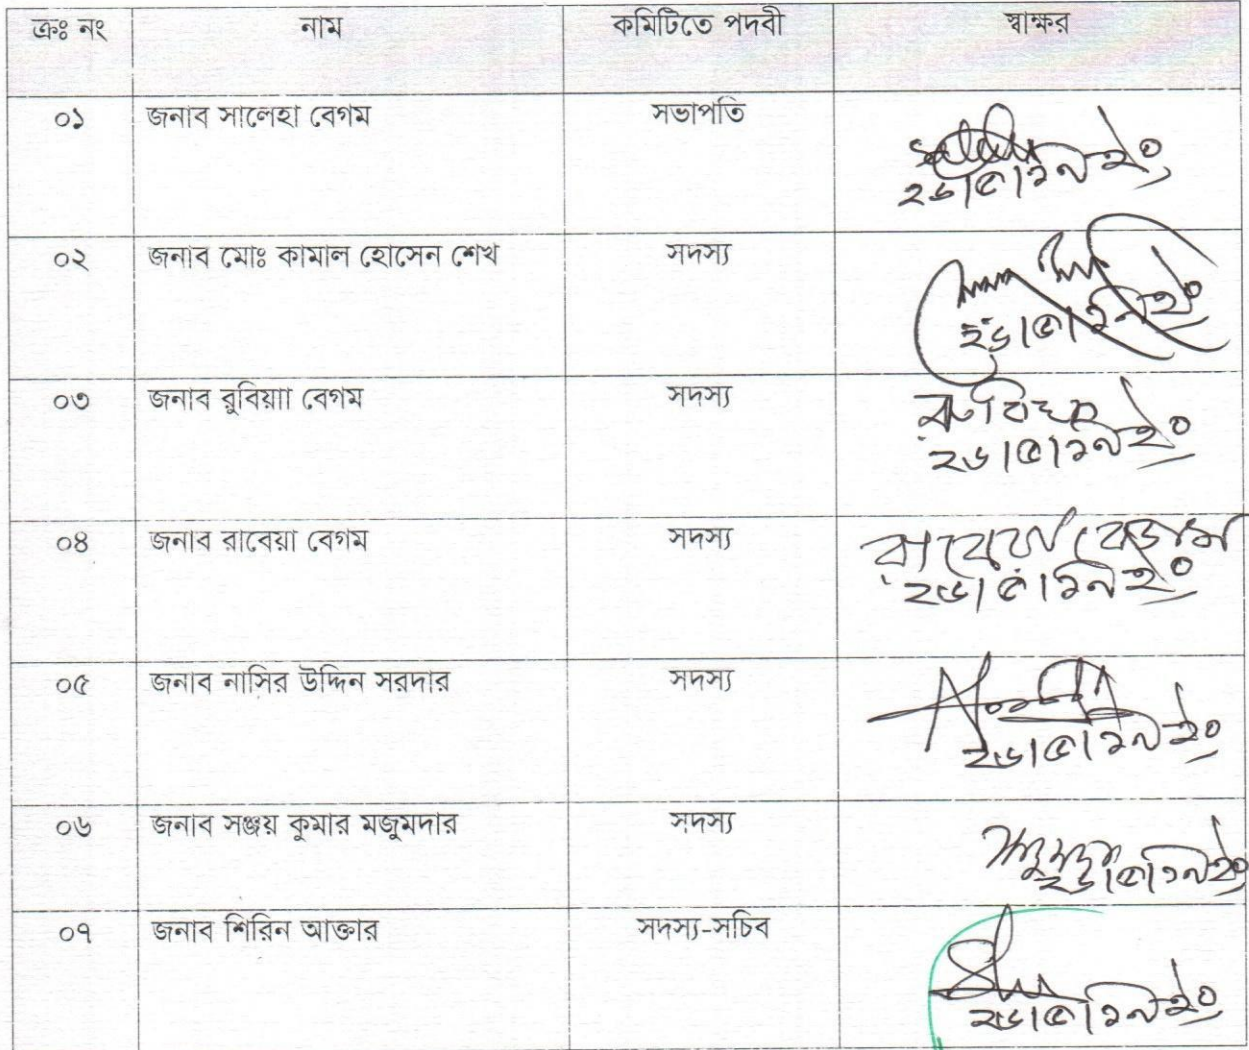 ক্রঃ নং নাম কমিটিতে পদবী স্বাক্ষর
০১ জনাব সালেহা বেগম সভাপতি
২৬/৫/১৯ ইং
০২ জনাব মোঃ কামাল হোসেন শেখ সদস্য
২৬/৫/১৯ ইং
০৩ জনাব রুবিয়াা বেগম সদস্য রুবিয়া
২৬/৫/১৯ ইং
০৪ জনাব রাবেয়া বেগম সদস্য রাবেয়া বেগম
২৬/৫/১৯ ইং
০৫ জনাব নাসির উদ্দিন সরদার সদস্য
২৬/৫/১৯ ইং
০৬ জনাব সঞ্জয় কুমার মজুমদার সদস্য
২৬/৫/১৯ ইং
০৭ জনাব শিরিন আক্তার সদস্য-সচিব
২৬/৫/১৯ ইং